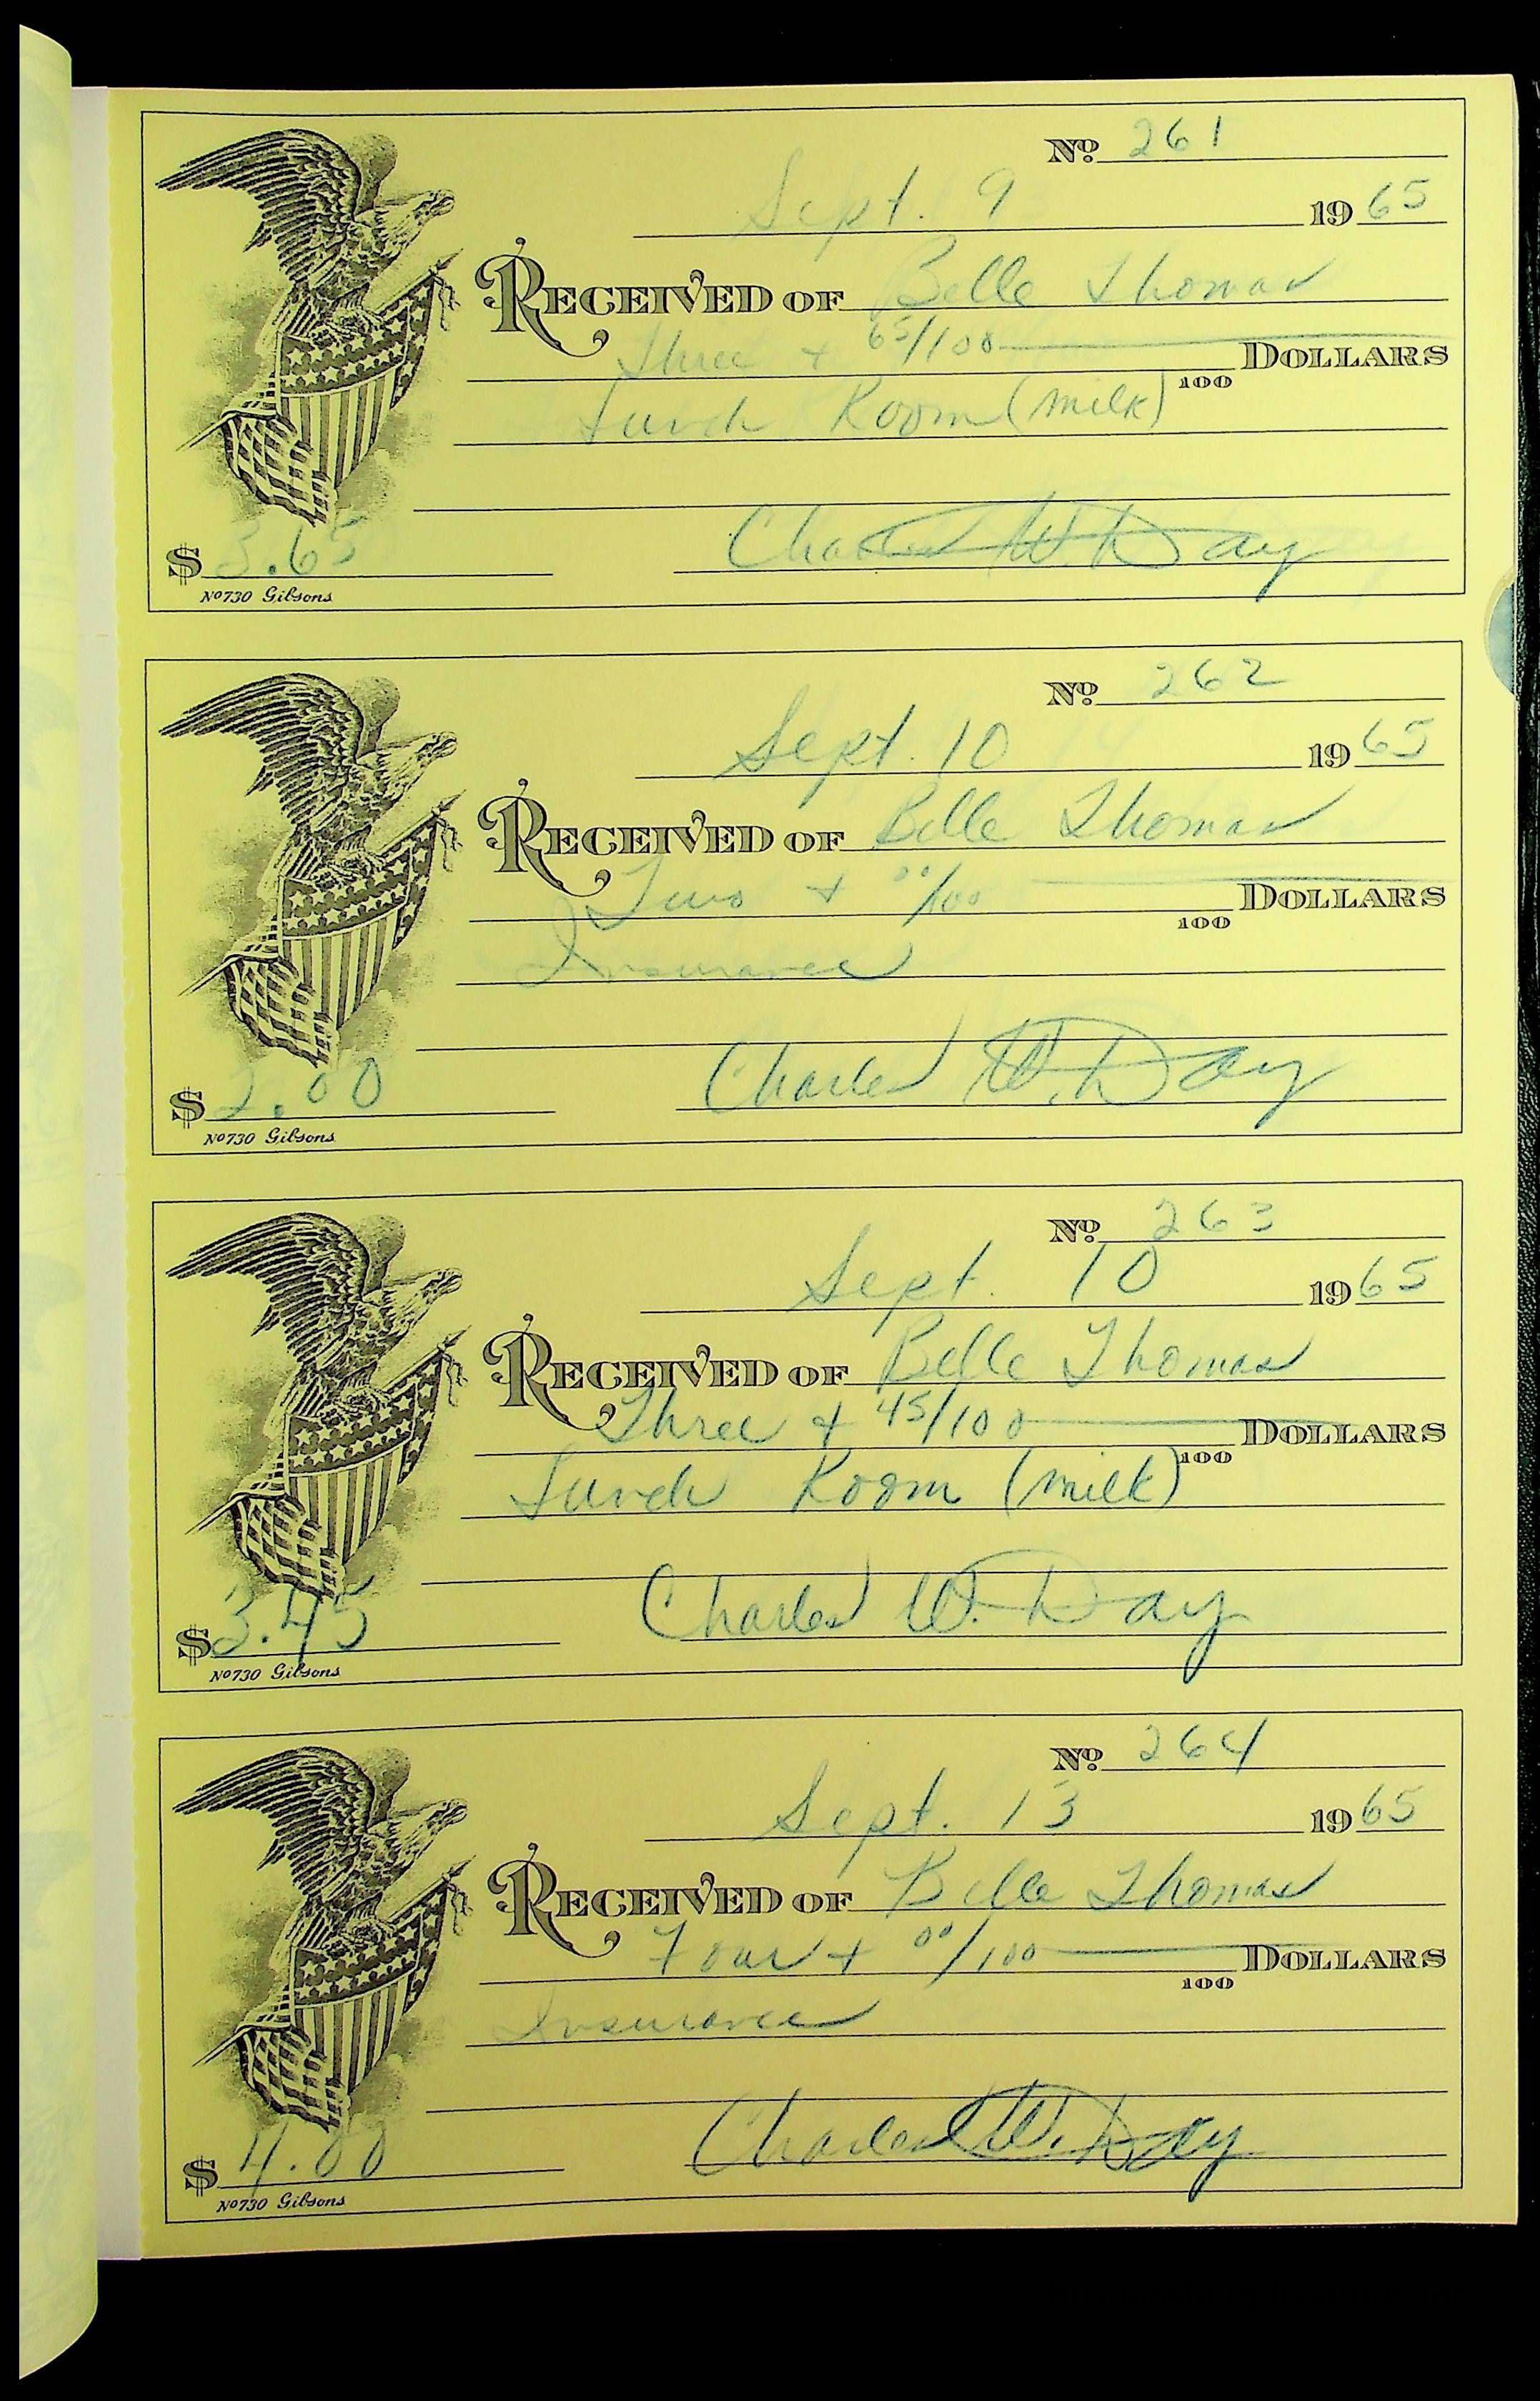 No. 261
Sept. 9 1965
RECEIVED OF Belle Thomas
Three + 65/100 DOLLARS
100
Lunch Room (milk)
Charles W. Day
$ 3.65
No 730 Gibsons
No. 262
Sept. 10 1965
RECEIVED OF Belle Thomas
Two + 00/100 DOLLARS
100
Insurance
Charles W. Day
$ 2.00
No 730 Gibsons
No. 263
Sept. 10 1965
RECEIVED OF Belle Thomas
Three + 45/100 DOLLARS
100
Lunch Room (milk)
Charles W. Day
$ 3.45
No 730 Gibsons
No. 264
Sept. 13 1965
RECEIVED OF Belle Thomas
Four + 00/100 DOLLARS
100
Insurance
Charles W. Day
$ 4.00
No 730 Gibsons